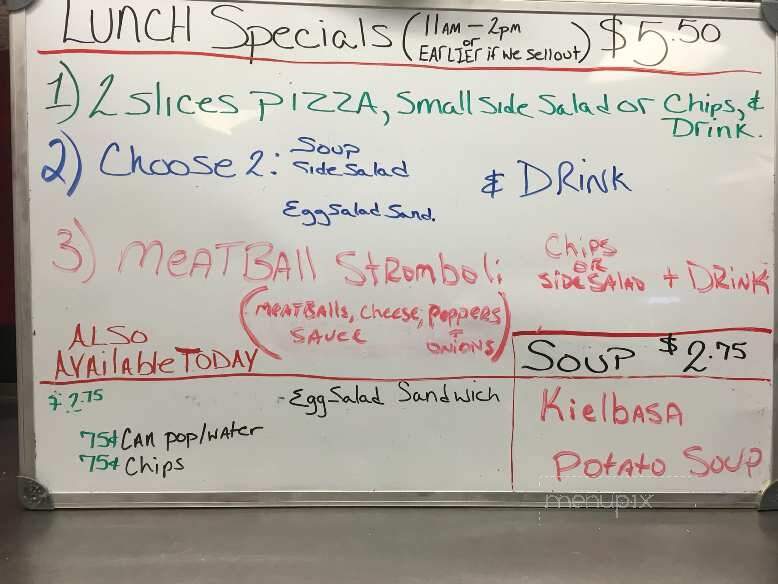 LUNCH Specials (11AM - 2pm or EARLIER if we sellout) $5.50
1) 2 slices PIZZA, Small side Salad or Chips, &
Drink.
2) Choose 2: Soup
Side Salad
& DRINK
Egg Salad Sand.
3) MEATBAll Stromboli
Chips
OR
SIDE SALAD + DRINK
(MEATBAlls, Cheese, Peppers
SAUCE & ONIONS)
ALSO
AVAilable TODAY
SOUP $2.75
$2.75 - Egg Salad Sandwich
75¢ CAN pop/water
75¢ Chips
KielbASA
Potato Soup
menupix